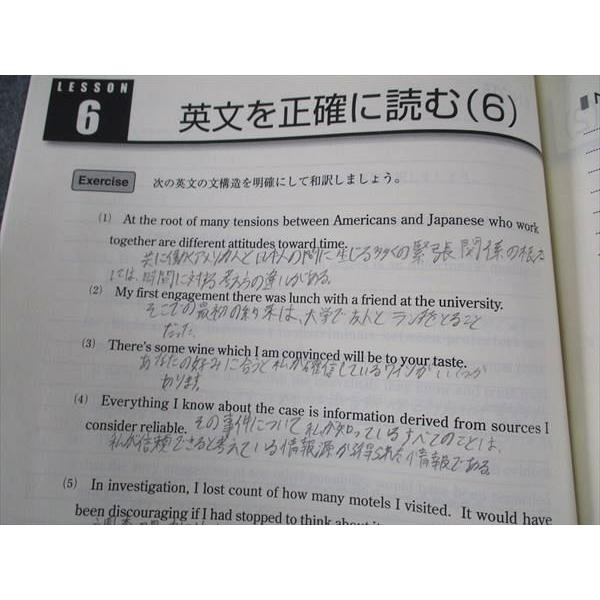 LESSON
6
英文を正確に読む(6)
Exercise 次の英文の文構造を明確にして和訳しましょう。
(1) At the root of many tensions between Americans and Japanese who work
together are different attitudes toward time.
共に働くアメリカ人と日本人の間に生じる多くの緊張関係の根底
には、時間に対する考え方の違いがある。
(2) My first engagement there was lunch with a friend at the university.
そこでの最初の約束は、大学で友人とランチをとること
だった。
(3) There's some wine which I am convinced will be to your taste.
あなたの好みに合うと私が確信しているワインがいくつか
あります。
(4) Everything I know about the case is information derived from sources I
consider reliable. その事件について私が知っているすべてのことは、
私が信頼できると考えている情報源から得られた情報である。
(5) In investigation, I lost count of how many motels I visited. It would have
been discouraging if I had stopped to think about